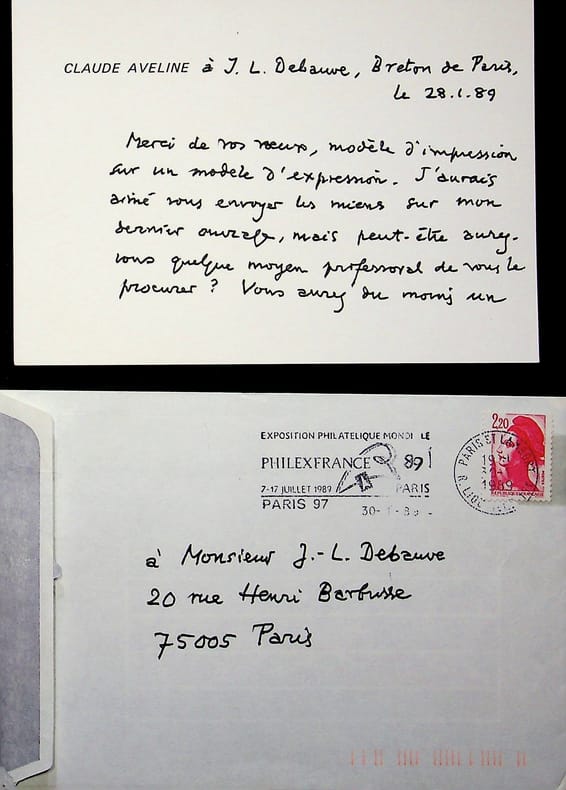 CLAUDE AVELINE à J. L. Debauve, Breton de Paris,
le 28.1.89
Merci de vos vœux, modèle d'impression
sur un modèle d'expression. J'aurais
aimé vous envoyer les miens sur mon
dernier ouvrage, mais peut-être aurez-
vous quelque moyen professoral de vous le
procurer ? Vous aurez du moins un
EXPOSITION PHILATELIQUE MONDI LE
PHILEXFRANCE 89
7-17 JUILLET 1989 PARIS
PARIS 97
30-1-89
2,20
PARIS ET LA
1989
à Monsieur J.-L. Debauve
20 rue Henri Barbusse
75005 Paris